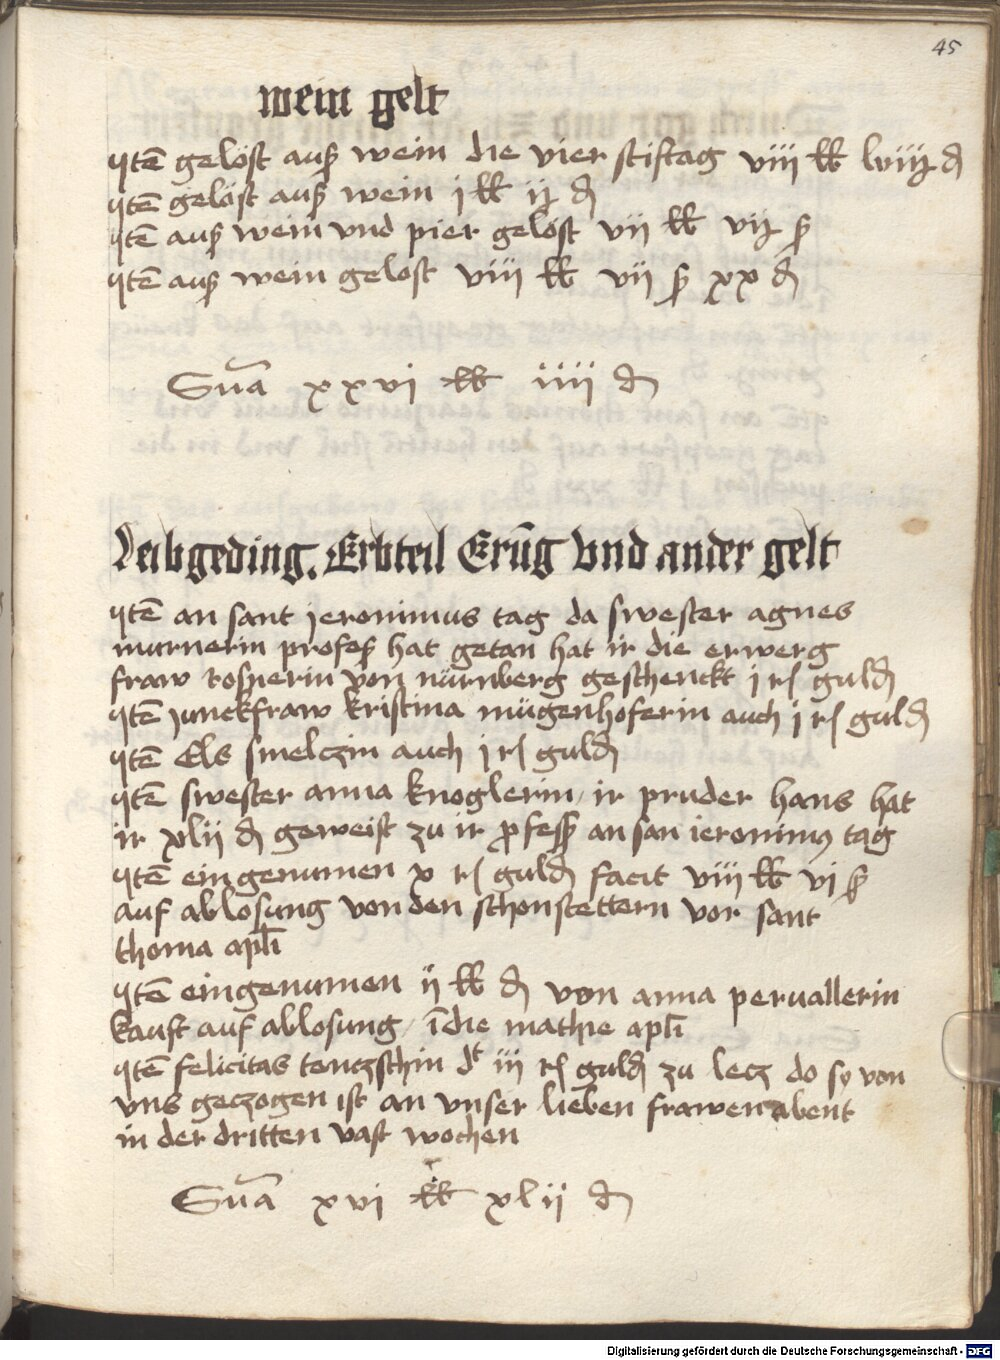 45
wein gelt
Itē gelöst auſʒ wein die vier stiftag viii lb lviij d
Itē gelöst auſʒ wein j lb ij d
Itē auſʒ wein vnd pier gelöst vij lb vij ſʒ
Itē auſʒ wein gelöst viii lb vij ſʒ xx d
Sūa xxvi lb iiii d
Leibgeding. Erbteil Erūg vnd ander gelt
Itē an sant jeronimus tag da swester agnes
murnerin profeſʒ hat getan hat ir die erwerg
fraw rosnerin von nürnberg geschenckt j r guld
Itē junckfraw kristina mügenhoferin auch j r guld
Itē Els smelczin auch j r guld
Itē swester anna knoglerin / ir pruder hans hat
ir xlii d geweist zu ir profeſſ an san ieronimꝰ tag
Itē ein genumen x r guld facit viii lb vj ſʒ
auf ablosung von den schonstettern vor sant
thoma apłi
Itē eingenumen ij lb d von anna peruallerin
kauft auf ablosung / ī die mathie apłi
Itē felicitas tentzschin dt iij r guld zu lecz do sy von
vns geczogen ist an vnser lieben frawen abent
in der dritten vast wochen
Sūa xvi lb xlij d
Digitalisierung gefördert durch die Deutsche Forschungsgemeinschaft - DFG